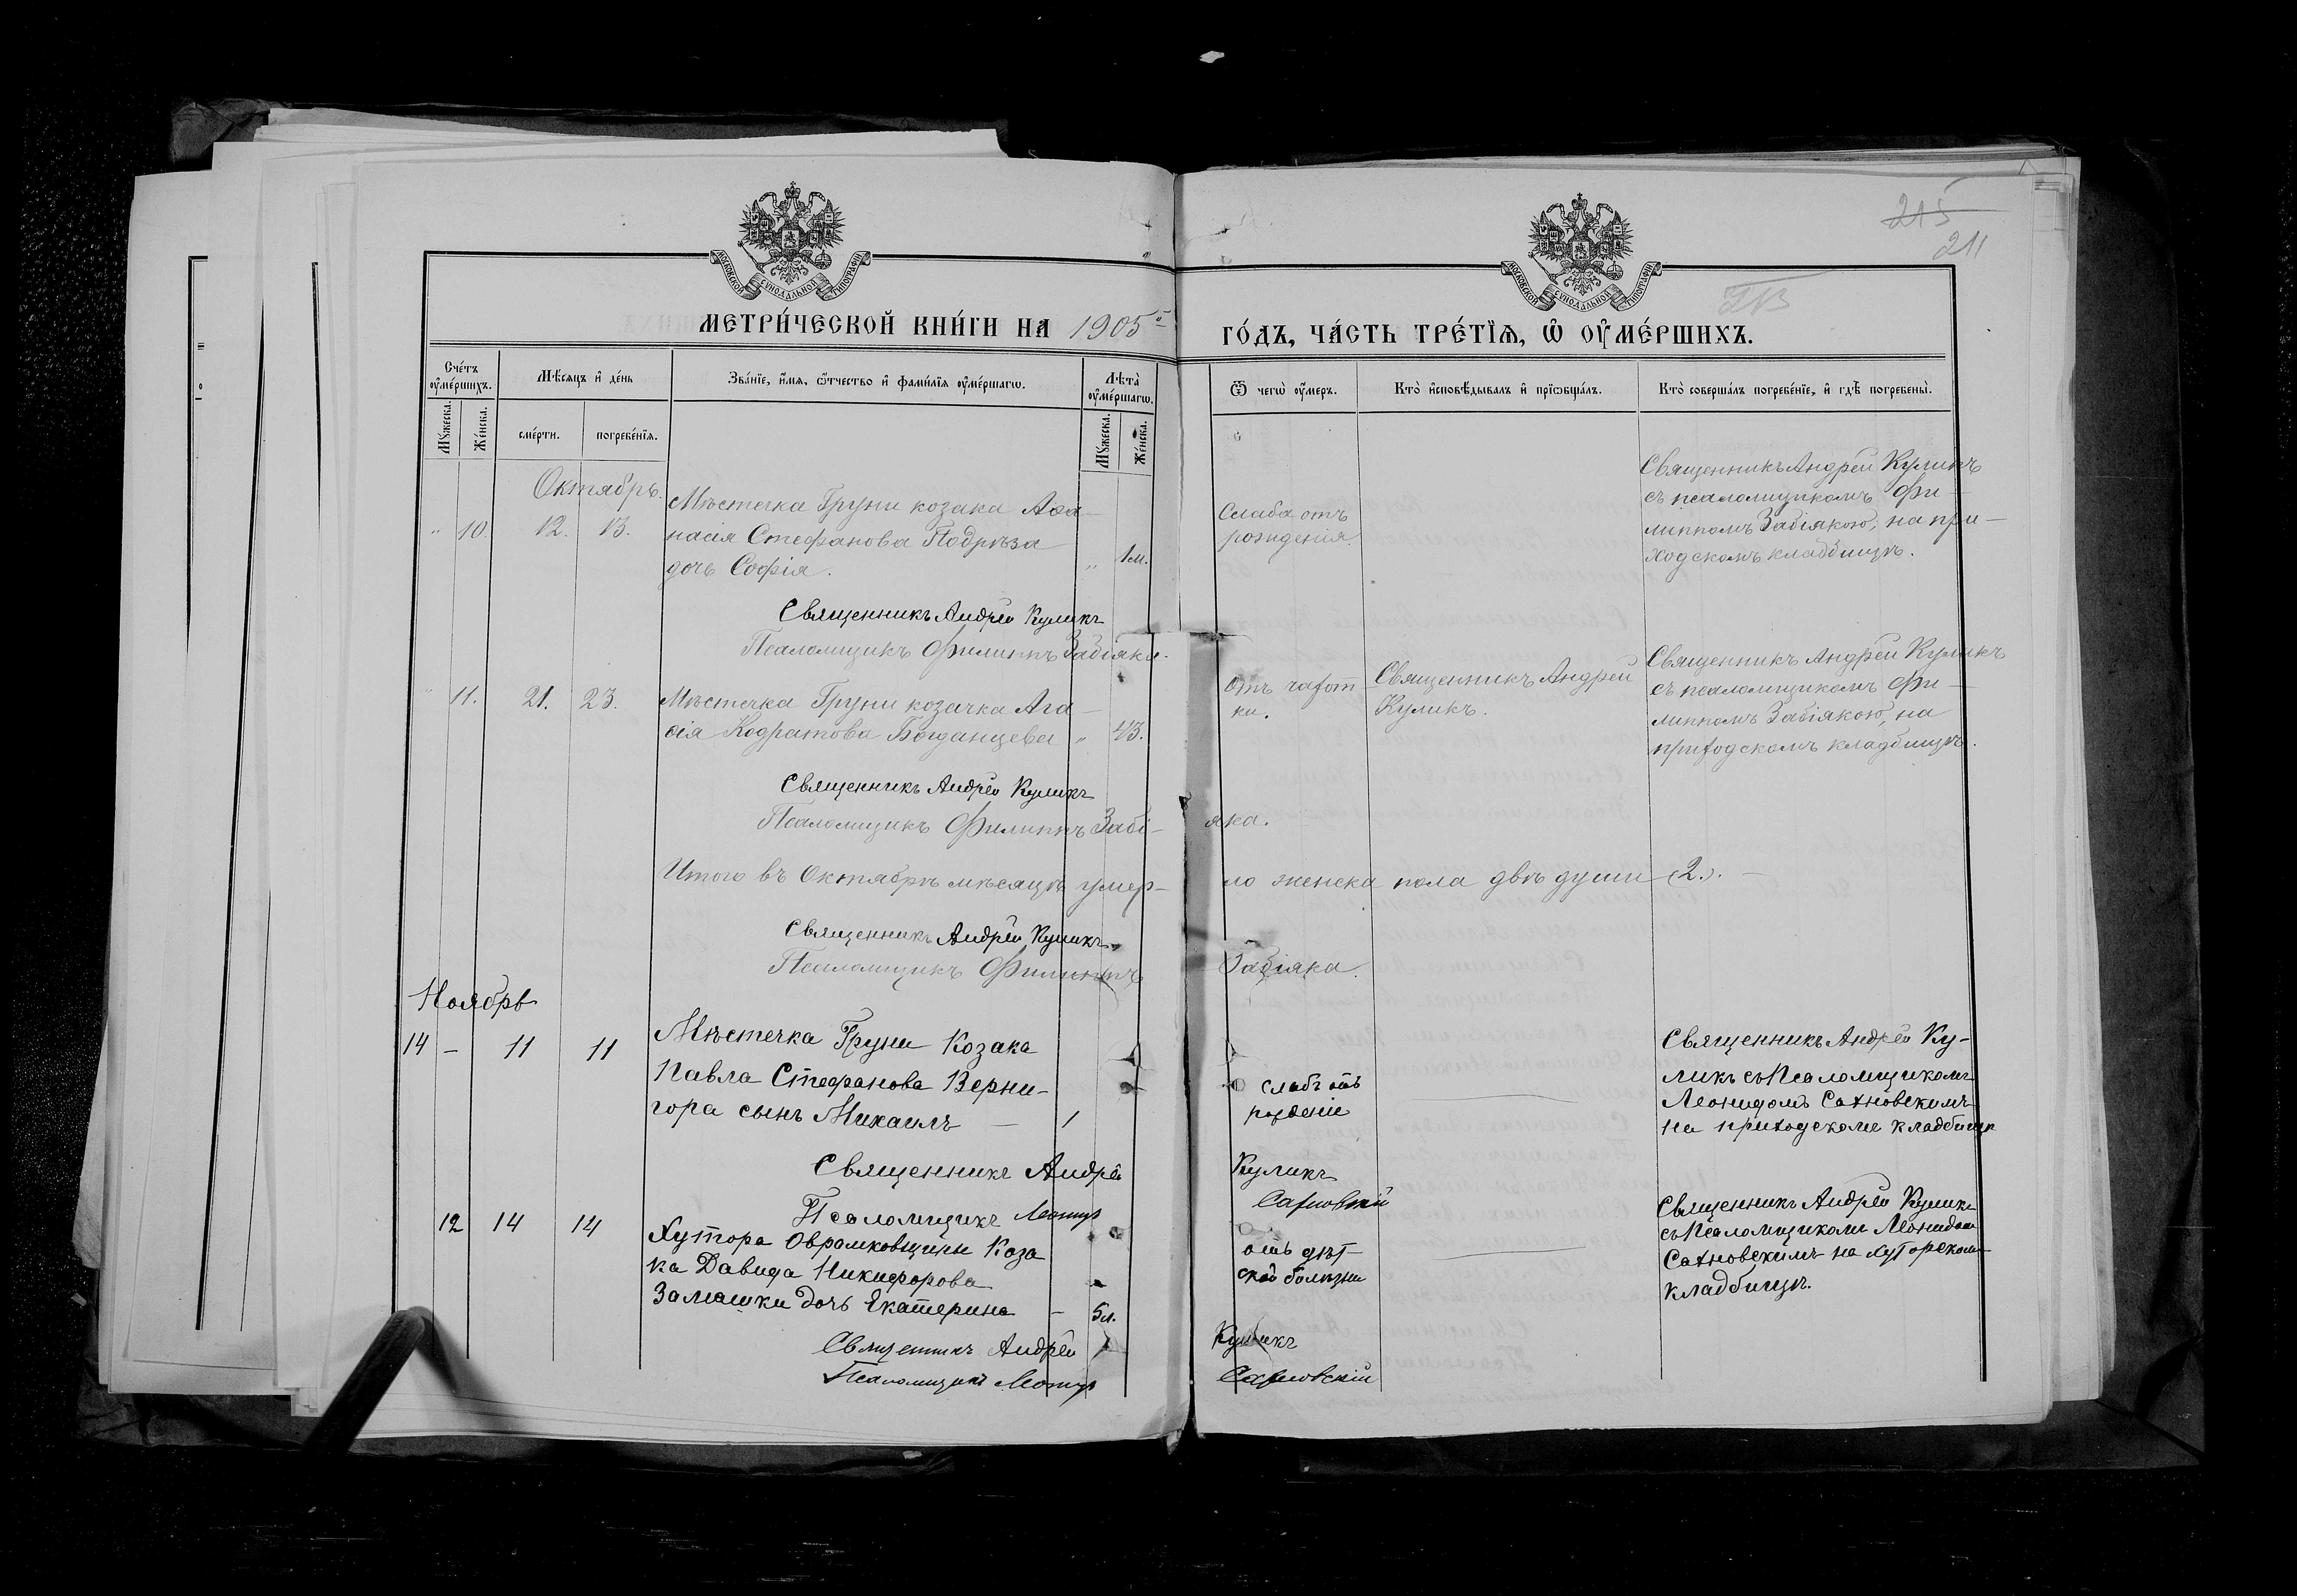 215
211
МОСКОВСКОЙ СѴНОДАЛЬНОЙ ТИПОГРАФІИ
МОСКОВСКОЙ СѴНОДАЛЬНОЙ ТИПОГРАФІИ
МЕТРИ́ЧЕСКОЙ КНИ́ГИ НА 1905
ГО́ДЪ, ЧА́СТЬ ТРЕ́ТЇѦ, Ѡ҆ ОУ҆МЕ́РШИХЪ.
Сче́тъ оу҆ме́ршихъ.
Мꙋ́жеска.
Же́нска.
Мѣ́сѧцъ и҆ де́нь
сме́рти.
погребе́нїѧ.
Зва́нїе, и҆́мѧ, ѻ҆́тчество и҆ фами́лїѧ оу҆ме́ршагѡ.
Лѣ́та оу҆ме́ршагѡ.
Мꙋ́жеска.
Же́нска.
Ѿ чегѡ̀ оу҆́меръ.
Кто̀ и҆сповѣ́дывалъ и҆ прїѡбща́лъ.
Кто̀ соверша́лъ погребе́нїе, и҆ гдѣ̀ погребены̀.
Октябрь.
" 10. 12. 13.
Мѣстечка Груни козака Аѳа-
насія Стефанова Подрѣза
дочь Софія. " 1м.
Слаба отъ
рожденія.
Священникъ Андрей Куликъ
съ псаломщикомъ Фи-
липпомъ Забіякою, на при-
ходскомъ кладбищѣ.
Священникъ Андрей Куликъ
Псаломщикъ Филиппъ Забіяка.
" 11. 21. 23.
Мѣстечка Груни козачка Ага-
ѳія Кодратова Богданцева " 43.
Отъ чахот-
ки.
Священникъ Андрей
Куликъ.
Священникъ Андрей Куликъ
съ псаломщикомъ Фи-
липпомъ Забіякою, на
приходскомъ кладбищѣ.
Священникъ Андрей Куликъ
Псаломщикъ Филиппъ Забі-яка.
Итого въ Октябрѣ мѣсяцѣ умер-ло женска пола двѣ души (2).
Священникъ Андрей Куликъ
Псаломщикъ Филиппъ Забіяка.
Ноябрь
14 – 11 11
Мѣстечка Груни Козака
Павла Стефанова Верни-
гора сынъ Михаилъ — 1
слабъ отъ
рожденіе
Священникъ Андрей Ку-
ликъ съ Псаломщикомъ
Леонидомъ Сахновскимъ
на приходскоме кладбищѣ
Священникъ Андрей Куликъ
Псаломщикъ Леонид Сахновскій
12 14 14
Хутора Оврамковщины Коза
ка Давида Никифорова
Замашки дочь Екатерина – 5л.
отъ дѣт-
ской болѣзни
Священникъ Андрей Куликъ
съ Псаломщикомъ Леонидом
Сахновскимъ на хуторском
кладбищѣ.
Священникъ Андрей Куликъ
Псаломщикъ Леонид Сахновскій